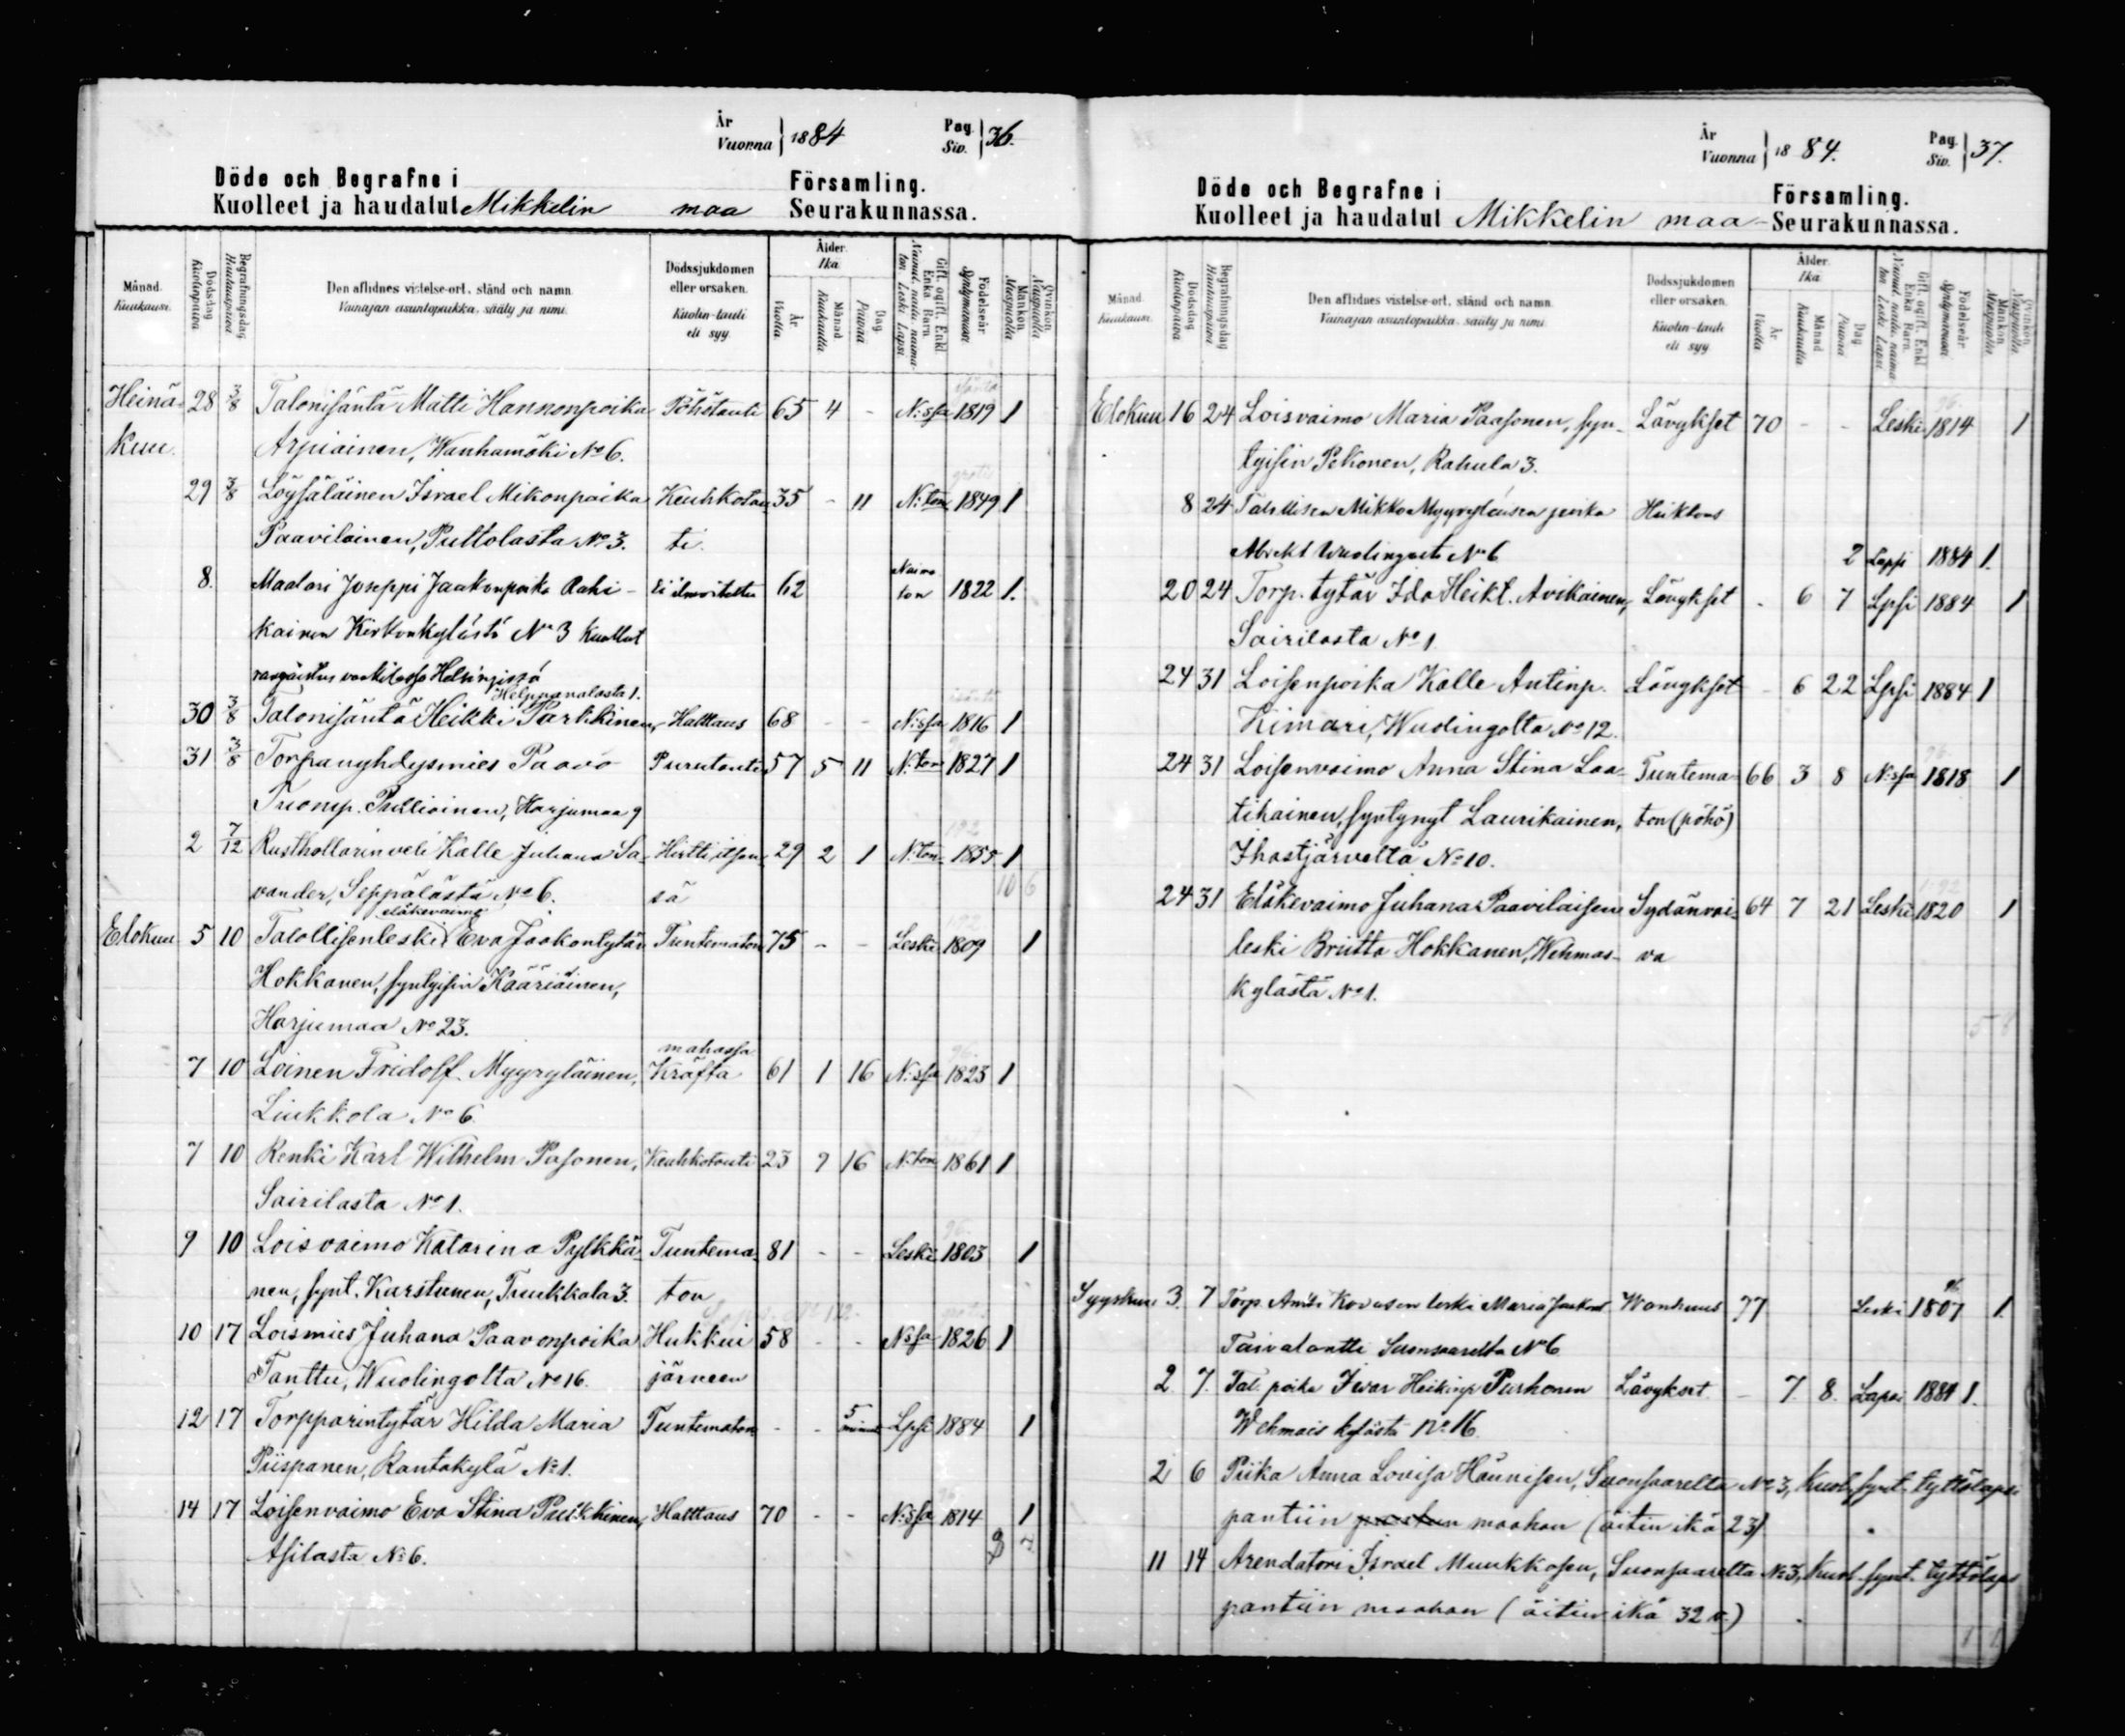 År
Vuonna 1884
Pag.
Siv. 36.
Döde och Begrafne i Församling.
Kuolleet ja haudatut Mikkelin maa Seurakunnassa.
Månad. Kuukausi.
Dödsdag Kuolinpäivä
Begrafningsdag Hautauspäivä
Den aflidnes vistelse-ort, stånd och namn.
Vainajan asuntopaikka, sääty ja nimi.
Dödssjukdomen eller orsaken.
Kuolin-tauti eli syy.
Ålder. Ikä.
År. Vuotta
Månad. Kuukautta
Dag. Päivää
Gift, ogift, Enkl. Enka Barn.
Födelseår Syntymävuosi
Mankön. Miespuolta
Qvinkön. Naispuolta
Heinä- 28 3/8 Talonisäntä Matti Hannonpoika Pöhötauti 65 4 - N:ssa 1819 1
kuu. Arpiainen, Wanhamäki No 6.
29 3/8 Löysäläinen Israel Mikonpoika Keuhkotau- 35 - 11 N:ton 1849 1
Paavilainen, Puttolasta No 3. ti.
8. Maalari Joseppi Jaakonpoika Rahi- Ei ilmoitettu 62 Naima ton 1822 1.
kainen Kirkonkylästä No 3 kuollut
rangaistus vankilassa Helsingissä
Helppanalasta 1.
30 3/8 Talonisäntä Heikki Parkkinen, Halttaus 68 - - N:ssa 1816 1
31 3/8 Torpanyhdysmies Paavo Purutauti 57 5 11 N:ton 1827 1
Tuomp. Pulliainen, Harjumaa 9
2 7/12 Rusthollarinveli Kalle Juhana Sa- Hirtti itsen- 29 2 1 N:ton 1855 1
vander, Seppälästä No 6. sä
10 6
eläkevaimo
Elokuu 5 10 Talollisenleski Eva Jaakontytär Tuntematon 75 - - Leski 1809 1
Hokkanen, syntyisin Kääriäinen,
Harjumaa No 23.
mahassa
7 10 Loinen Fridolf Myyryläinen, Kräfta 61 1 16 N:ssa 1823 1
Liukkola No 6
7 10 Renki Karl Wilhelm Pasonen, Keuhkotauti 23 7 16 N:ton 1861 1
Sairilasta No 1.
9 10 Loisvaimo Katarina Pylkkä- Tuntema- 81 - - Leski 1803 1
nen, synt. Karstunen, Tuukkala 3. ton
10 17 Loismies Juhana Paavonpoika Hukkui 58 - - N:ssa 1826 1
Tanttu, Wuolingolta No 16. järveen
12 17 Torpparintytär Hilda Maria Tuntematon - - 5 minut Lpsi 1884 1
Piispanen, Rantakylä No 1.
14 17 Loisenvaimo Eva Stina Pulkkinen, Halttaus 70 - - N:ssa 1814 1
Asilasta No 6.
9 7
År
Vuonna 1884.
Pag.
Siv. 37.
Döde och Begrafne i Församling.
Kuolleet ja haudatut Mikkelin maa- Seurakunnassa.
Månad. Kuukausi.
Dödsdag Kuolinpäivä
Begrafningsdag Hautauspäivä
Den aflidnes vistelse-ort, stånd och namn.
Vainajan asuntopaikka, sääty ja nimi.
Dödssjukdomen eller orsaken.
Kuolin-tauti eli syy.
Ålder. Ikä.
År. Vuotta
Månad. Kuukautta
Dag. Päivää
Gift, ogift, Enkl. Enka Barn.
Födelseår Syntymävuosi
Mankön. Miespuolta
Qvinkön. Naispuolta
Elokuu 16 24 Loisvaimo Maria Paasonen, syn- Lävykset 70 - - Leski 1814 1
tyisin Pekonen, Rahula 3.
8 24 Talollisen Mikko Myyryläisen poika Heikkous
Wuolingosta No 6 2 Lapsi 1884 1.
20 24 Torp. tytär Ida Heikt. Avikainen, Lävykset - 6 7 Lpsi 1884 1
Sairilasta No 1
24 31 Loisenpoika Kalle Antinp. Lävykset - 6 22 Lpsi 1884 1
Kimari, Wuolingolta No 12.
24 31 Loisenvaimo Anna Stina Laa- Tuntema- 66 3 8 N:ssa 1818 1
tikainen, syntynyt Laurikainen, ton (pöhö)
Ihastjärveltä No 10.
24 31 Eläkevaimo Juhana Paavilaisen Sydänvai- 64 7 21 Leski 1820 1
leski Briitta Hokkanen, Wehmas- va
kylästä No 1.
Syyskuu 3. 7 Torp. Antti Kovasen leski Maria Wanhuus 77 Leski 1807 1.
Taivalantti Suonsaarelta No 6
2 7. Tal. poika Iwar Heikinp Purhonen Lävykset - 7 8. Lapsi 1884 1.
Wehmais kylästä No 16
2 6 Piika Anna Lovisa Häunisen, Suonsaarelta No 3, kuol. synt. tyttölapsi
pantiin maahan (äitin ikä 23)
11 14 Arendatori Israel Muukkosen, Suonsaarelta No 3, kuol. synt. tyttölaps
pantiin maahan (äitin ikä 32 v.)
1 1